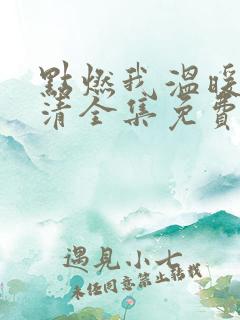 點燃我 溫暖
清全集免費
遇見小七
未經同意禁止轉載